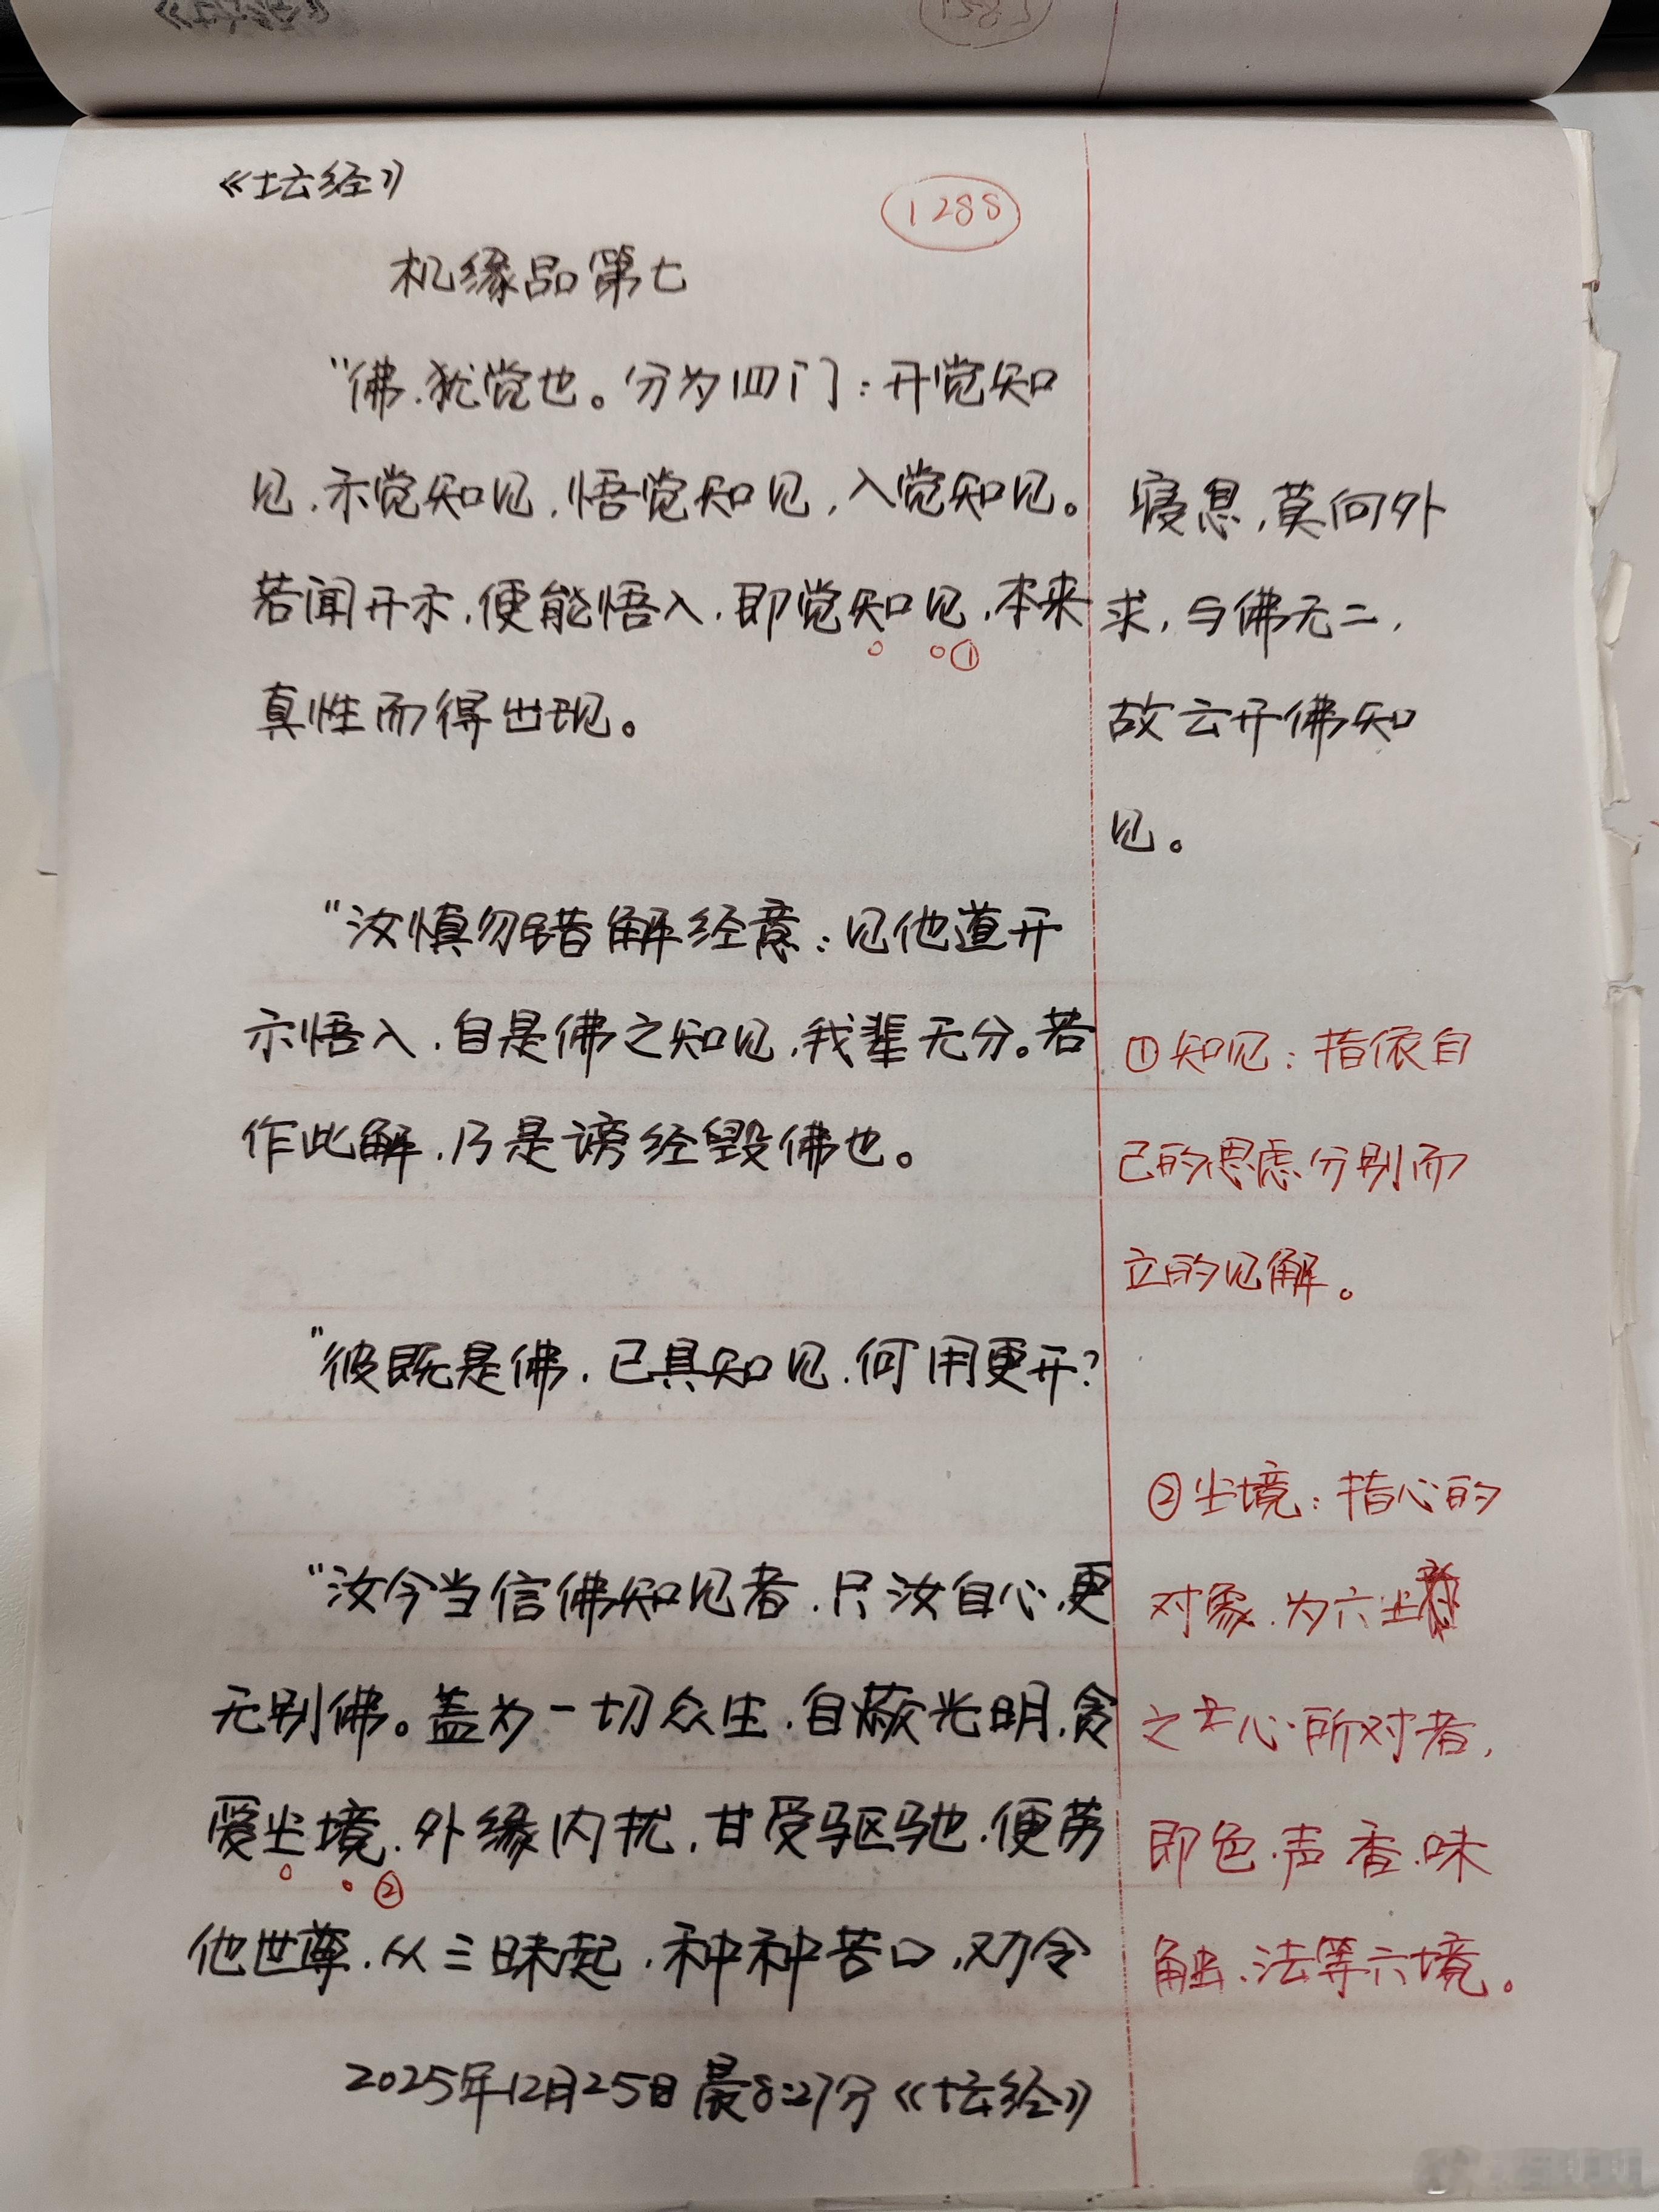 《坛经》
1288
机缘品第七
"佛、犹觉也。分为四门：开觉知
见、示觉知见、悟觉知见，入觉知见。
若闻开示、便能悟入、即觉知见、本来
①
真性而得出现。
"汝慎勿错解经意：见他道开
示悟入、自是佛之知见、我辈无分。若
作此解、乃是谤经毁佛也。
"彼既是佛、已具知见、何用更开？
"汝今当信佛知见者、只汝自心、更
无别佛。盖为一切众生、自蔽光明、贪
爱尘境、外缘内扰、甘受驱驰、便劳
②
他世尊、从三昧起、种种苦口、劝令
寝息，莫向外
求，与佛无二，
故云开佛知
见。
①知见：指依自
己的思虑分别而
立的见解。
②尘境：指心的
对象、为六尘
之心所对者，
即色、声、香、味
触、法等六境。
2025年12月25日晨8:27分《坛经》